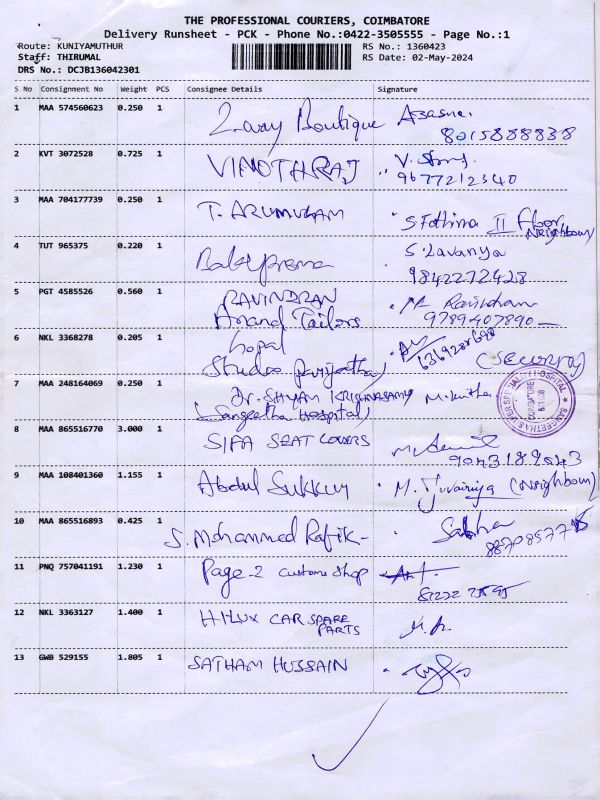 THE PROFESSIONAL COURIERS, COIMBATORE
Delivery Runsheet - PCK - Phone No.:0422-3505555 - Page No.:1
Route: KUNIYAMUTHUR RS No.: 1360423
Staff: THIRUMAL RS Date: 02-May-2024
DRS No.: DCJB136042301
S No Consignment No Weight PCS Consignee Details Signature
1 MAA 574560623 0.250 1 Boutique
8015888838
2 KVT 3072528 0.725 1 VINOTHRAJ V.
9677212340
3 MAA 704177739 0.250 1 T. ARUMUGAM S. Fathima II Floor
Neighbour
4 TUT 965375 0.220 1 S. Lavanya
9842272428
5 PGT 4585526 0.560 1 RAVINDRAN
Anand Tailors 9789407890
6 NKL 3368278 0.205 1 Gopal
Studio (Security)
7 MAA 248164069 0.250 1 Dr. SHYAM KRISHNASAMY
(Sangeetha Hospital)
8 MAA 865516770 3.000 1 SIFA SEAT COVERS
9043189543
9 MAA 108401360 1.155 1 Abdul Sukkur M. (Neighbour)
10 MAA 865516893 0.425 1 S. Mohammed Rafik
11 PNQ 757041191 1.230 1 Page-2 Custome Shop
12 NKL 3363127 1.400 1 HILUX CAR SPARE
PARTS
13 GWB 529155 1.805 1 SATHAM HUSSAIN